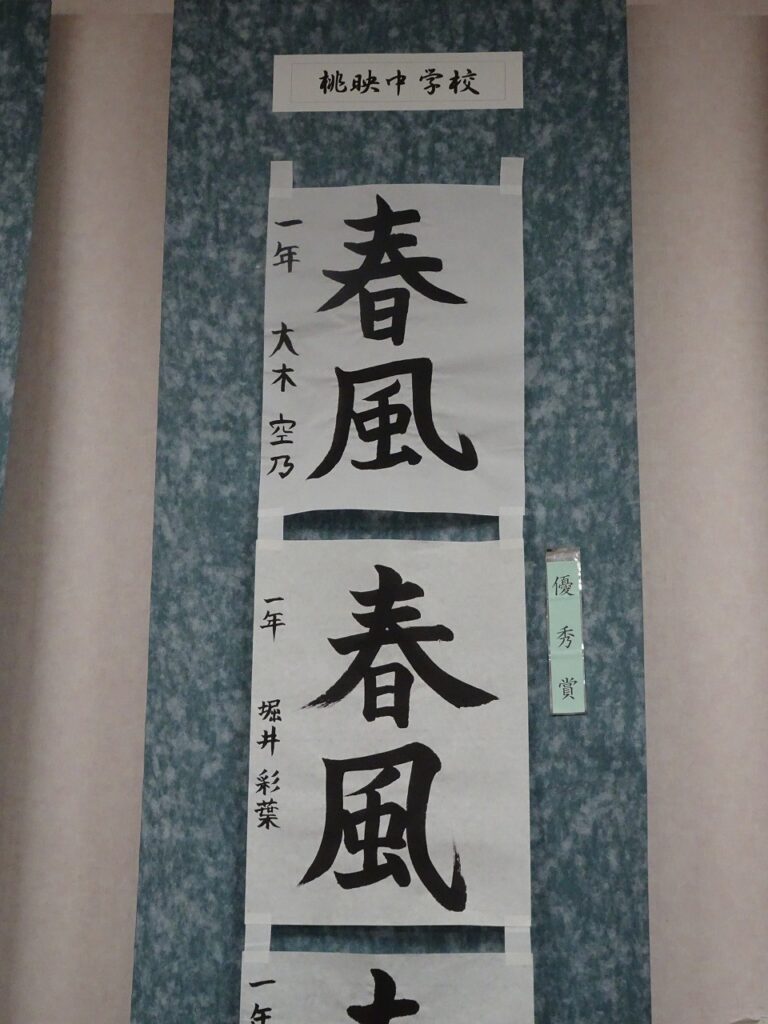 桃映中学校
春風
一年 大木 空乃
優秀賞
春風
一年 堀井 彩葉
一年